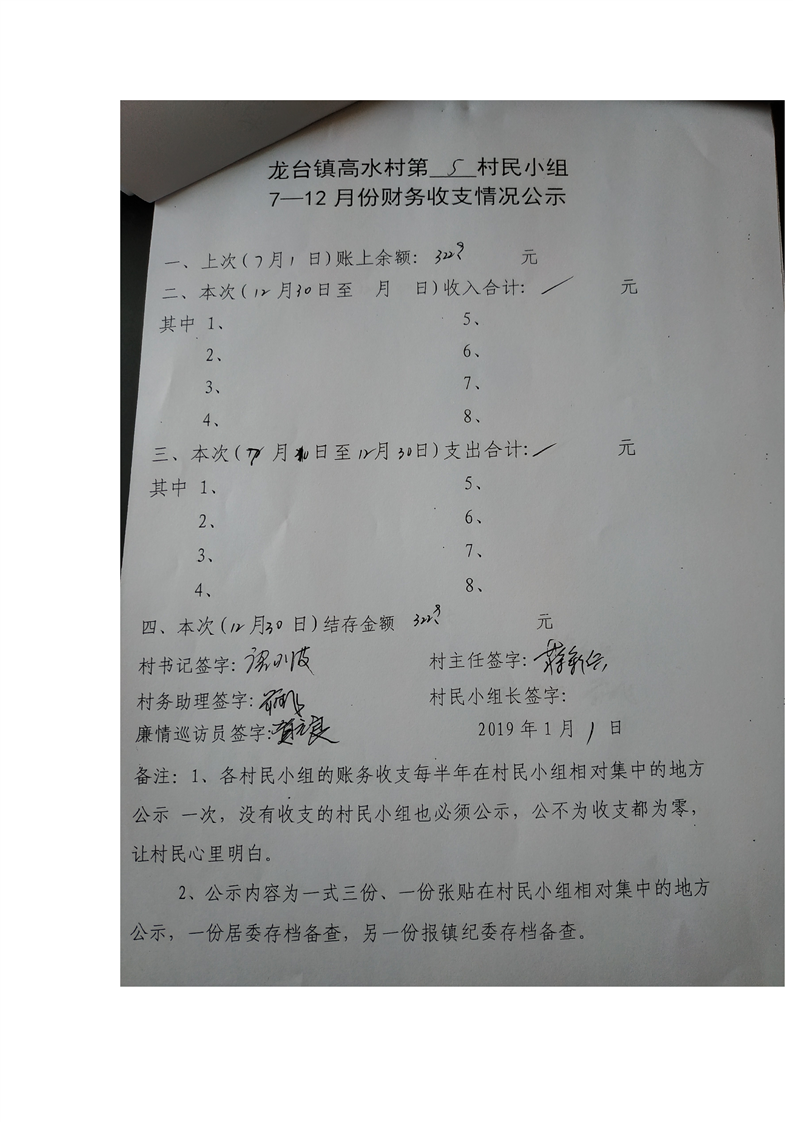 龙台镇高水村第 5 村民小组
7—12 月份财务收支情况公示
一、上次(7月1 日)账上余额: 元
二、本次(12月30日至 月 日)收入合计:/ 元
其中 1、 5、
2、 6、
3、 7、
4、 8、
三、本次( 月 日至12月30日)支出合计:/ 元
其中 1、 5、
2、 6、
3、 7、
4、 8、
四、本次(12月30 日)结存金额 元
村书记签字: 村主任签字:
村务助理签字: 村民小组长签字:
廉情巡访员签字: 2019 年 1 月 1 日
备注: 1、各村民小组的账务收支每半年在村民小组相对集中的地方
公示 一次,没有收支的村民小组也必须公示,公不为收支都为零,
让村民心里明白。
2、公示内容为一式三份、一份张贴在村民小组相对集中的地方
公示,一份居委存档备查,另一份报镇纪委存档备查。